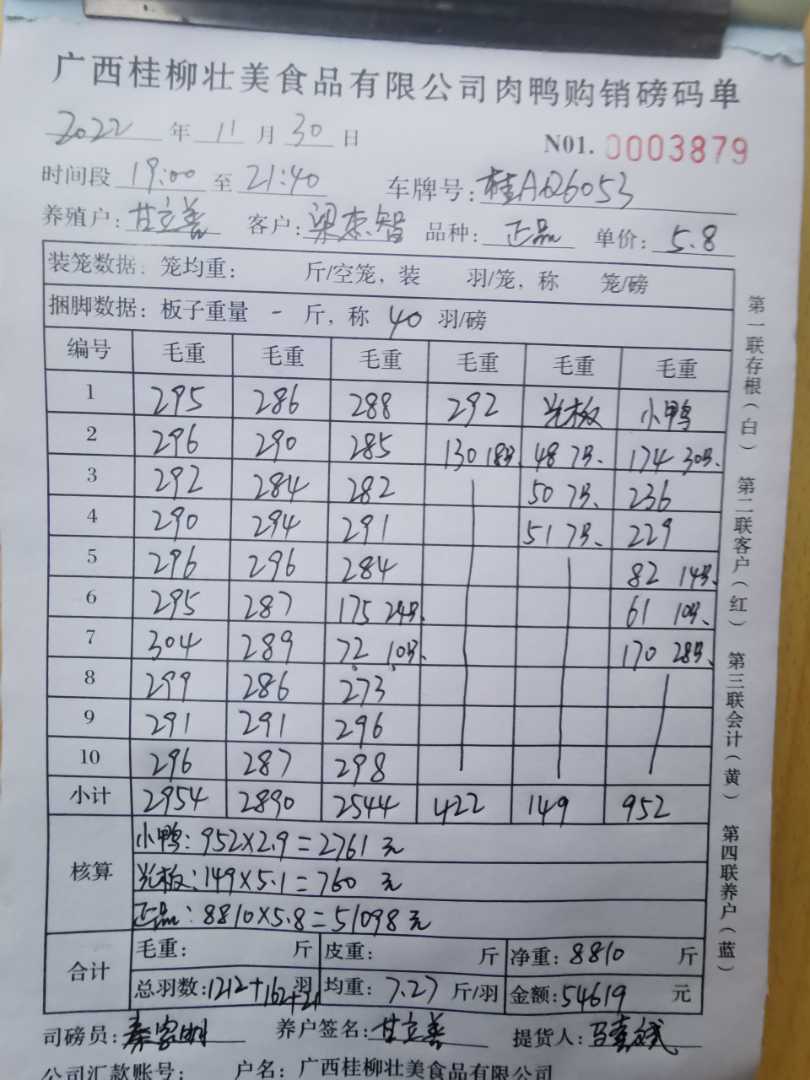 广西桂柳壮美食品有限公司肉鸭购销磅码单
2022 年 11 月 30 日 N01. 0003879
时间段 19:00 至 21:40 车牌号: 桂AQ6053
养殖户: 甘立善 客户: 梁杰智 品种: 正品 单价: 5.8
装笼数据: 笼均重: 斤/空笼, 装 羽/笼, 称 笼/磅
捆脚数据: 板子重量 - 斤, 称 40 羽/磅
编号 毛重 毛重 毛重 毛重 毛重 毛重
1 295 286 288 292 光板 小鸭
2 296 290 285 130 18只 48 7只、 174 30只、
3 292 284 282 50 7只、 236
4 290 294 291 51 7只、 229
5 296 296 284 82 14只、
6 295 287 175 24只、 61 10只、
7 304 289 72 10只、 170 28只、
8 299 286 273
9 291 291 296
10 296 287 298
小计 2954 2890 2544 422 149 952
核算 小鸭: 952×2.9=2761 元
光板: 149×5.1=760 元
正品: 8810×5.8=51098 元
合计 毛重: 斤 皮重: 斤 净重: 8810 斤
总羽数: 1212+162+21 羽 均重: 7.27 斤/羽 金额: 54619 元
司磅员: 秦家明 养户签名: 甘立善 提货人:
公司汇款账号: 户名: 广西桂柳壮美食品有限公司
第一联存根(白) 第二联客户(红) 第三联会计(黄) 第四联养户(蓝)